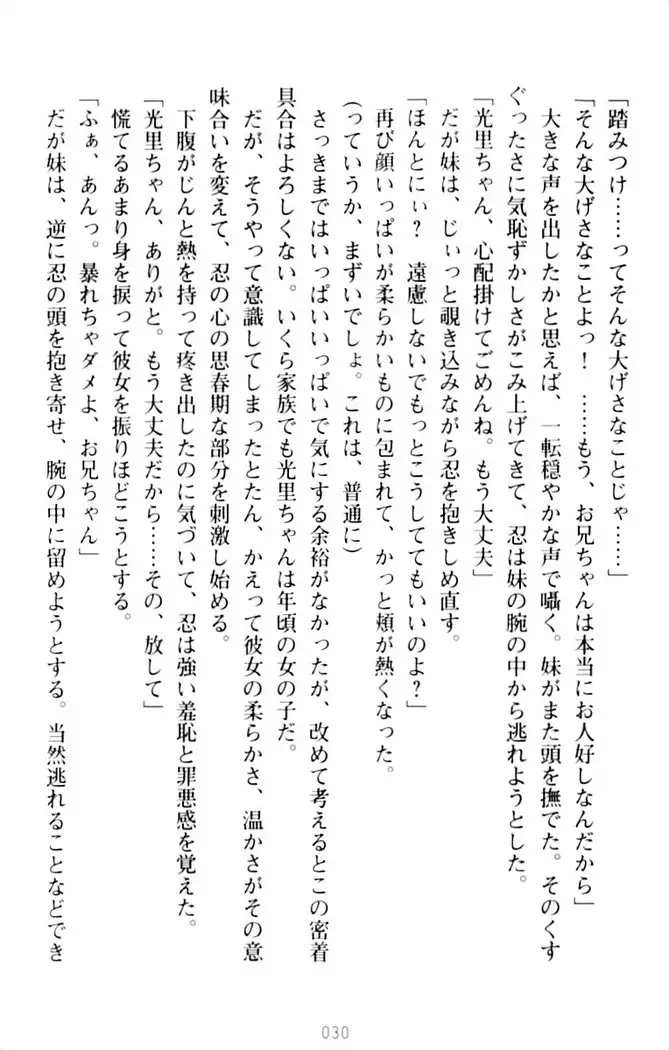 「踏みつけ……ってそんな大げさなことじゃ……」
「そんな大げさなことよっ！　……もう、お兄ちゃんは本当にお人好しなんだから」
大きな声を出したかと思えば、一転穏やかな声で囁く。妹がまた頭を撫でた。そのくす
ぐったさに気恥ずかしさがこみ上げてきて、忍は妹の腕の中から逃れようとした。
「光里ちゃん、心配掛けてごめんね。もう大丈夫」
だが妹は、じぃっと覗き込みながら忍を抱きしめ直す。
「ほんとにぃ？　遠慮しないでもっとこうしててもいいのよ？」
再び顔いっぱいが柔らかいものに包まれて、かっと頬が熱くなった。
(っていうか、まずいでしょ。これは、普通に)
さっきまではいっぱいいっぱいで気にする余裕がなかったが、改めて考えるとこの密着
具合はよろしくない。いくら家族でも光里ちゃんは年頃の女の子だ。
だが、そうやって意識してしまったとたん、かえって彼女の柔らかさ、温かさがその意
味合いを変えて、忍の心の思春期な部分を刺激し始める。
下腹がじんと熱を持って疼き出したのに気づいて、忍は強い羞恥と罪悪感を覚えた。
「光里ちゃん、ありがと。もう大丈夫だから……その、放して」
慌てるあまり身を捩って彼女を振りほどこうとする。
「ふぁ、あんっ。暴れちゃダメよ、お兄ちゃん」
だが妹は、逆に忍の頭を抱き寄せ、腕の中に留めようとする。当然逃れることなどでき
030